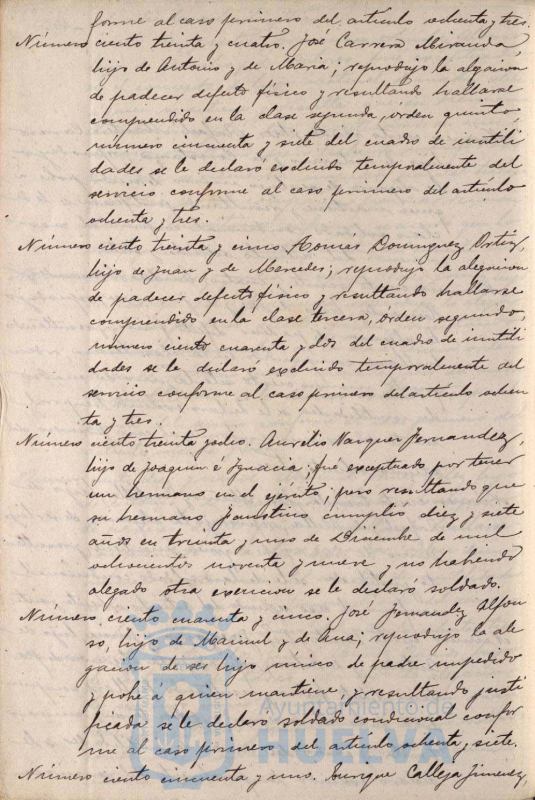 forme al caso primero del artículo ochenta y tres.
Número ciento treinta y cuatro. José Carrera Miranda,
hijo de Antonio y de Maria; reprodujo la alegacion
de padecer defecto físico y resultando hallarse
comprendido en la clase segunda, órden quinto,
número cincuenta y siete del cuadro de inutili
dades se le declaró excluido temporalmente del
servicio conforme al caso primero del artículo
ochenta y tres.
Número ciento treinta y cinco Tomás Dominguez Ortiz,
hijo de Juan y de Mercedes; reprodujo la alegacion
de padecer defecto físico y resultando hallarse
comprendido en la clase tercera, orden segundo,
número ciento cuarenta y dos del cuadro de inutili
dades se le declaró excluido temporalmente del
servicio conforme al caso primero del artículo ochen
ta y tres.
Número ciento treinta y ocho. Aurelio Vazquez Fernandez,
hijo de Joaquin é Ignacia; fué exceptuado por tener
un hermano en el ejército; pero resultando que
su hermano Faustino cumplió diez y siete
años en treinta y uno de Diciembre de mil
ochocientos noventa y nueve y no habiendo
alegado otra exencion se le declaró soldado.
Número ciento cuarenta y cinco. José Fernandez Alfon
so, hijo de Manuel y de Ana; reprodujo la ale
gacion de ser hijo único de padre impedido
y pobre á quien mantiene y resultando justi
ficada se le declaró soldado condicional confor
me al caso primero del artículo ochenta y siete.
Número ciento cincuenta y uno. Enrique Calleja Jimenez,
Ayuntamiento de
HUELVA